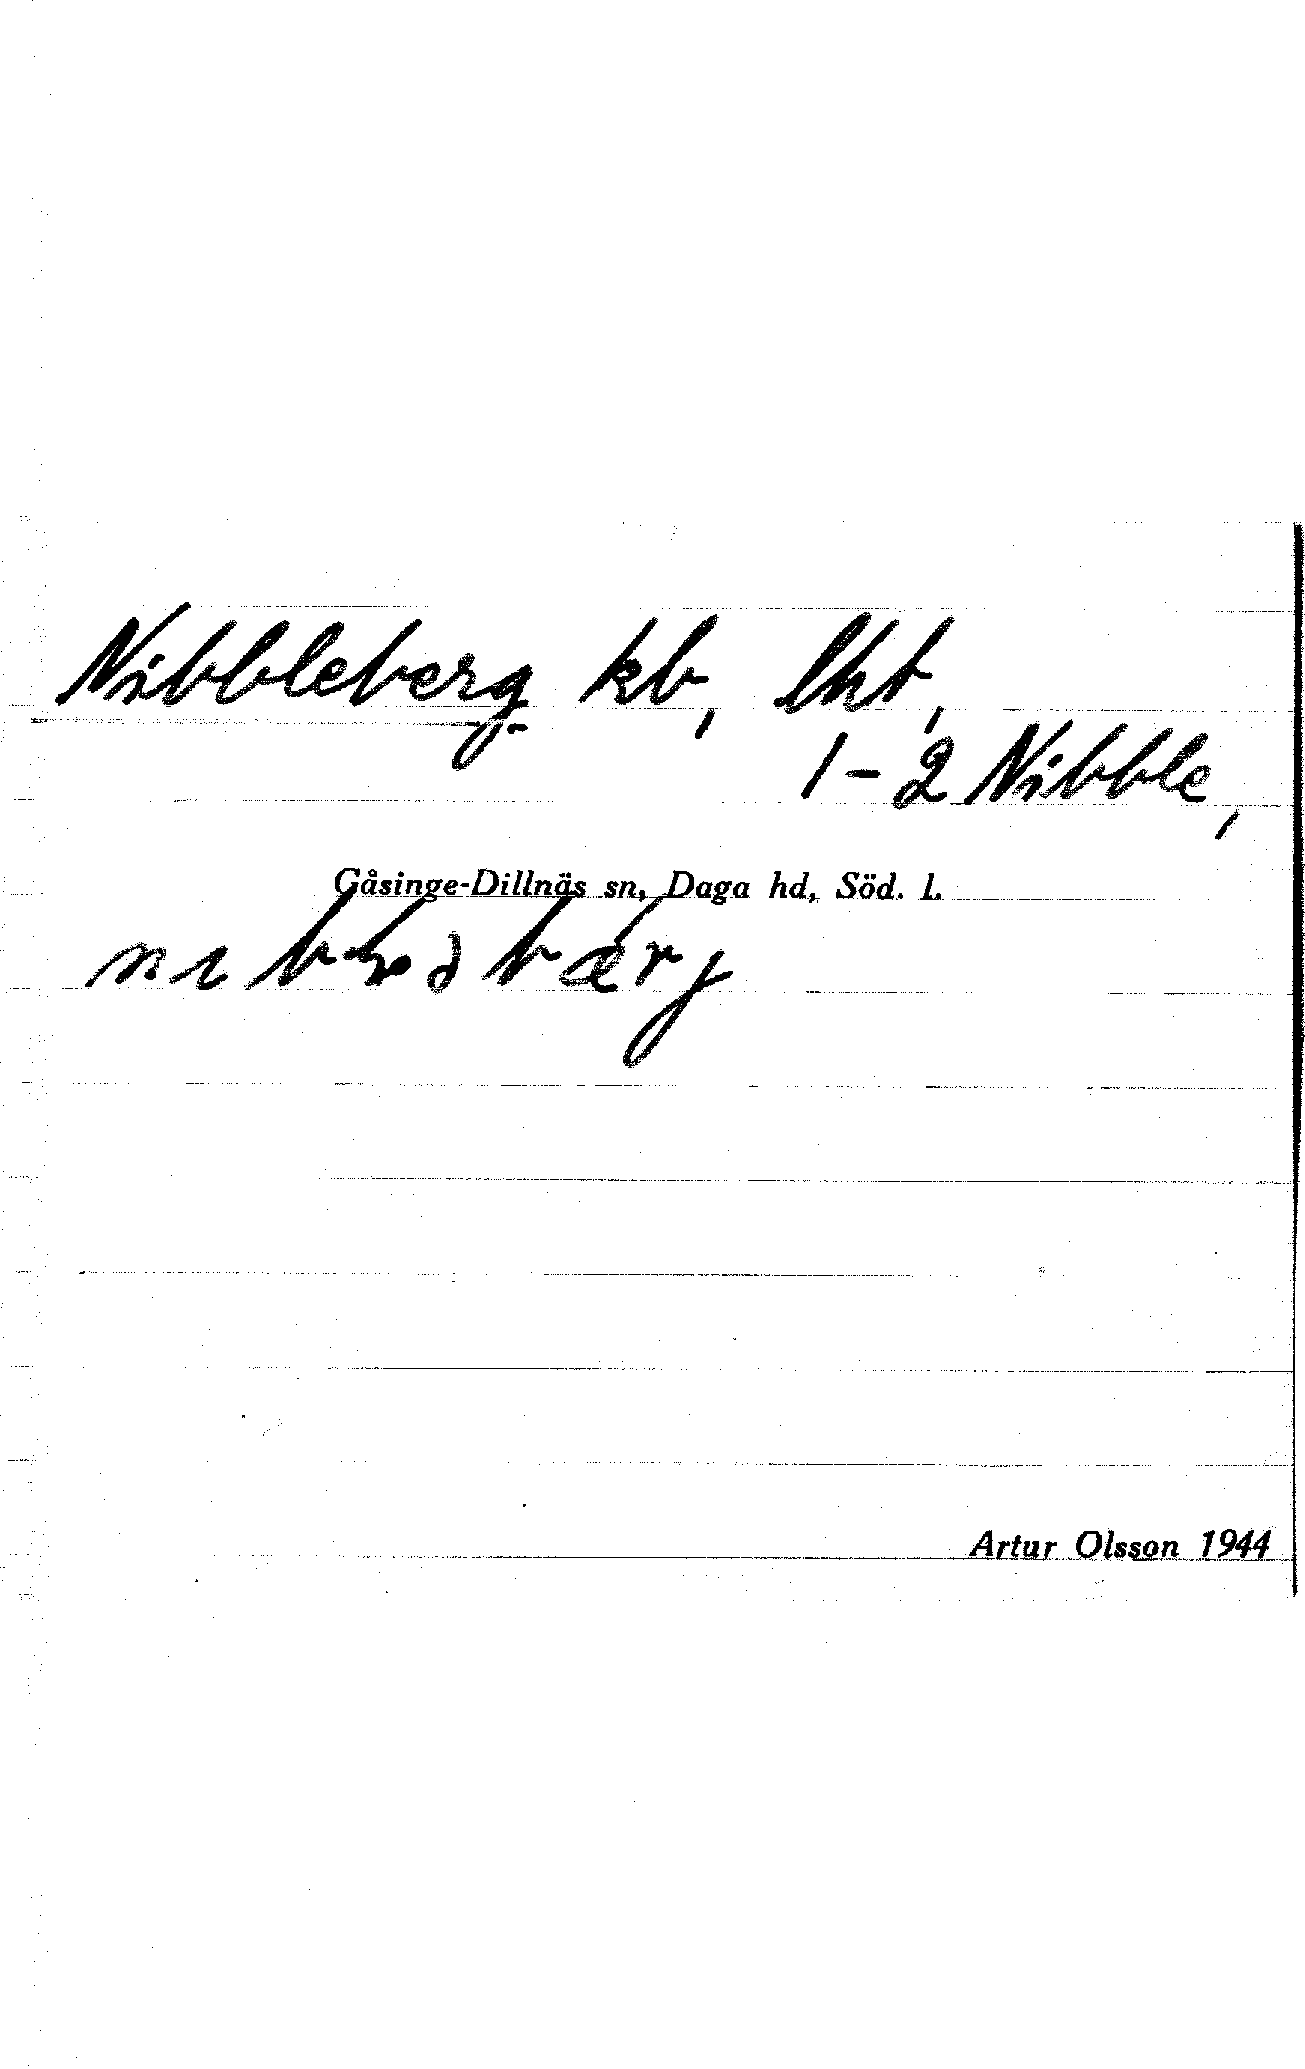 Nibbleberg kb, lht,
1-2 Nibble,
Gåsinge-Dillnäs sn, Daga hd, Söd. l.
Artur Olsson 1944